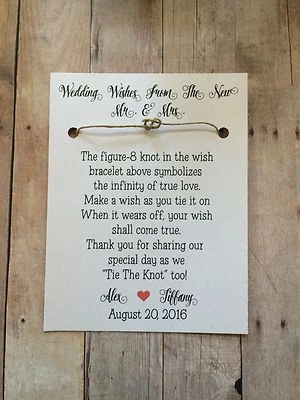 Wedding Wishes From The New
Mr. & Mrs.
The figure-8 knot in the wish
bracelet above symbolizes
the infinity of true love.
Make a wish as you tie it on
When it wears off, your wish
shall come true.
Thank you for sharing our
special day as we
"Tie The Knot" too!
Alex ❤ Tiffany
August 20, 2016